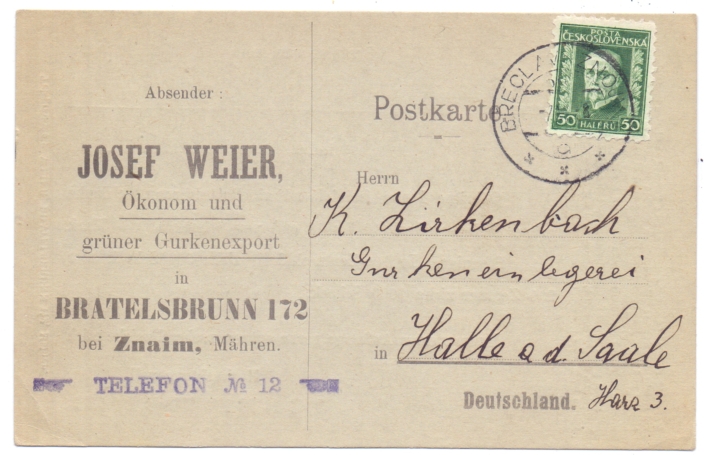 Absender :
JOSEF WEIER,
Ökonom und
grüner Gurkenexport
in
BRATELSBRUNN 172
bei Znaim, Mähren.
TELEFON № 12
Postkarte
POSTA
ČESKOSLOVENSKA
50 HALÉRŮ 50
BŘECLAV
Herrn
K. Zirkenbach
Gurkeneinlegerei
in Halle a. d. Saale
Deutschland. Harz 3.